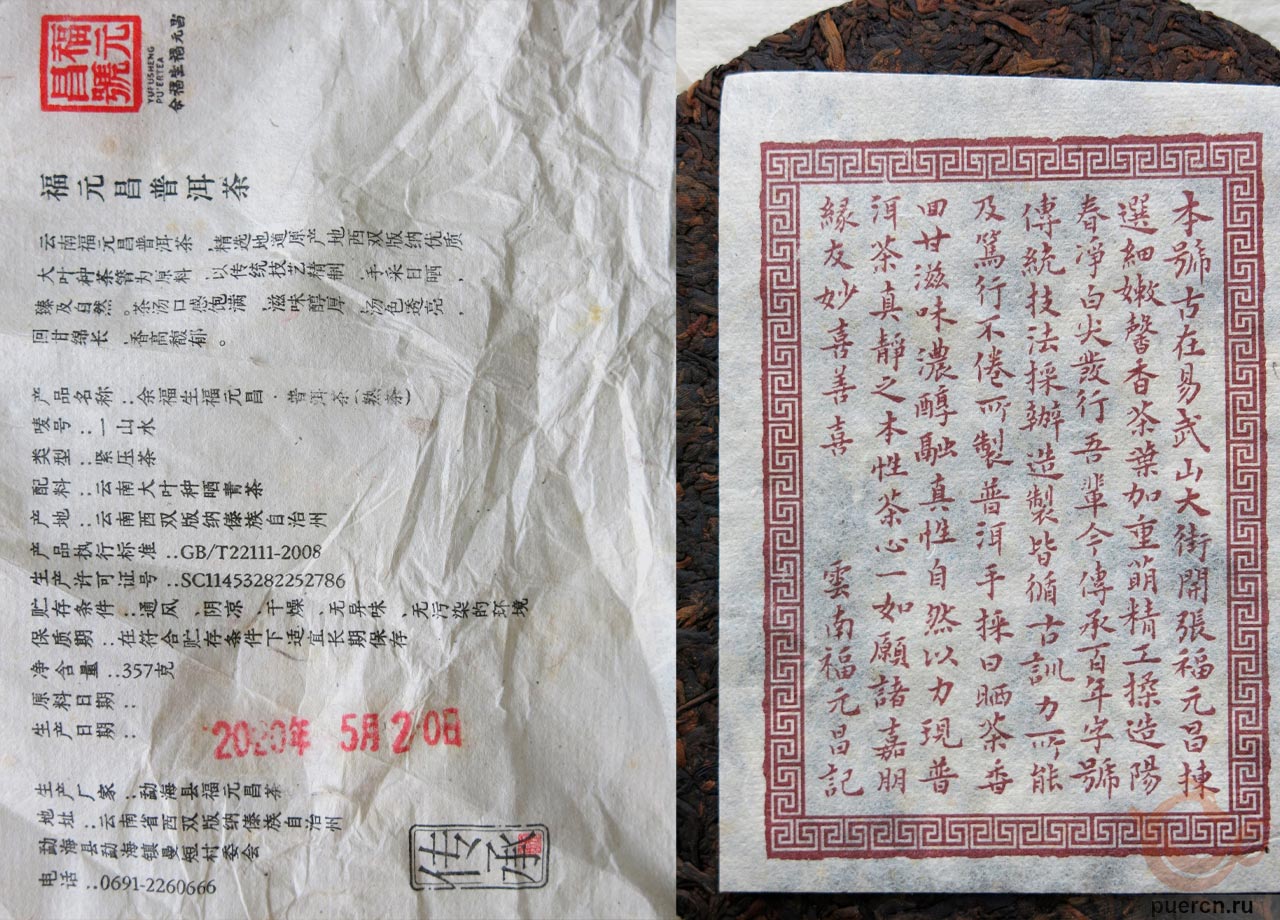 福元昌號
YUFUSHENG
PU'ERTEA
余福生福元昌
福元昌普洱茶
云南福元昌普洱茶,精选地道原产地西双版纳优质
大叶种茶箐为原料,以传统技艺精制,手采日晒,
臻及自然。茶汤口感饱满,滋味醇厚,汤色透亮,
回甘绵长,香高馥郁。
产品名称:余福生福元昌·普洱茶(熟茶)
唛号:一山水
类型:紧压茶
配料:云南大叶种晒青茶
产地:云南西双版纳傣族自治州
产品执行标准:GB/T22111-2008
生产许可证号:SC11453282252786
贮存条件:通风、阴凉、干燥、无异味、无污染的环境
保质期:在符合贮存条件下适宜长期保存
净含量:357克
原料日期:
生产日期:
2020年 5月20日
生产厂家:勐海县福元昌茶
地址:云南省西双版纳傣族自治州
勐海县勐海镇曼短村委会
电话:0691-2260666
传承
本號古在易武山大街開張福元昌揀
選細嫩馨香茶葉加重萌精工揉造陽
春淨白尖發行吾輩今傳承百年字號
傳統技法採辦造製皆循古訓力所能
及篤行不倦所製普洱手採日晒茶香
回甘滋味濃醇融真性自然以力現普
洱茶真靜之本性茶心一如願諸嘉朋
緣友妙喜善喜 雲南福元昌記
puercn.ru